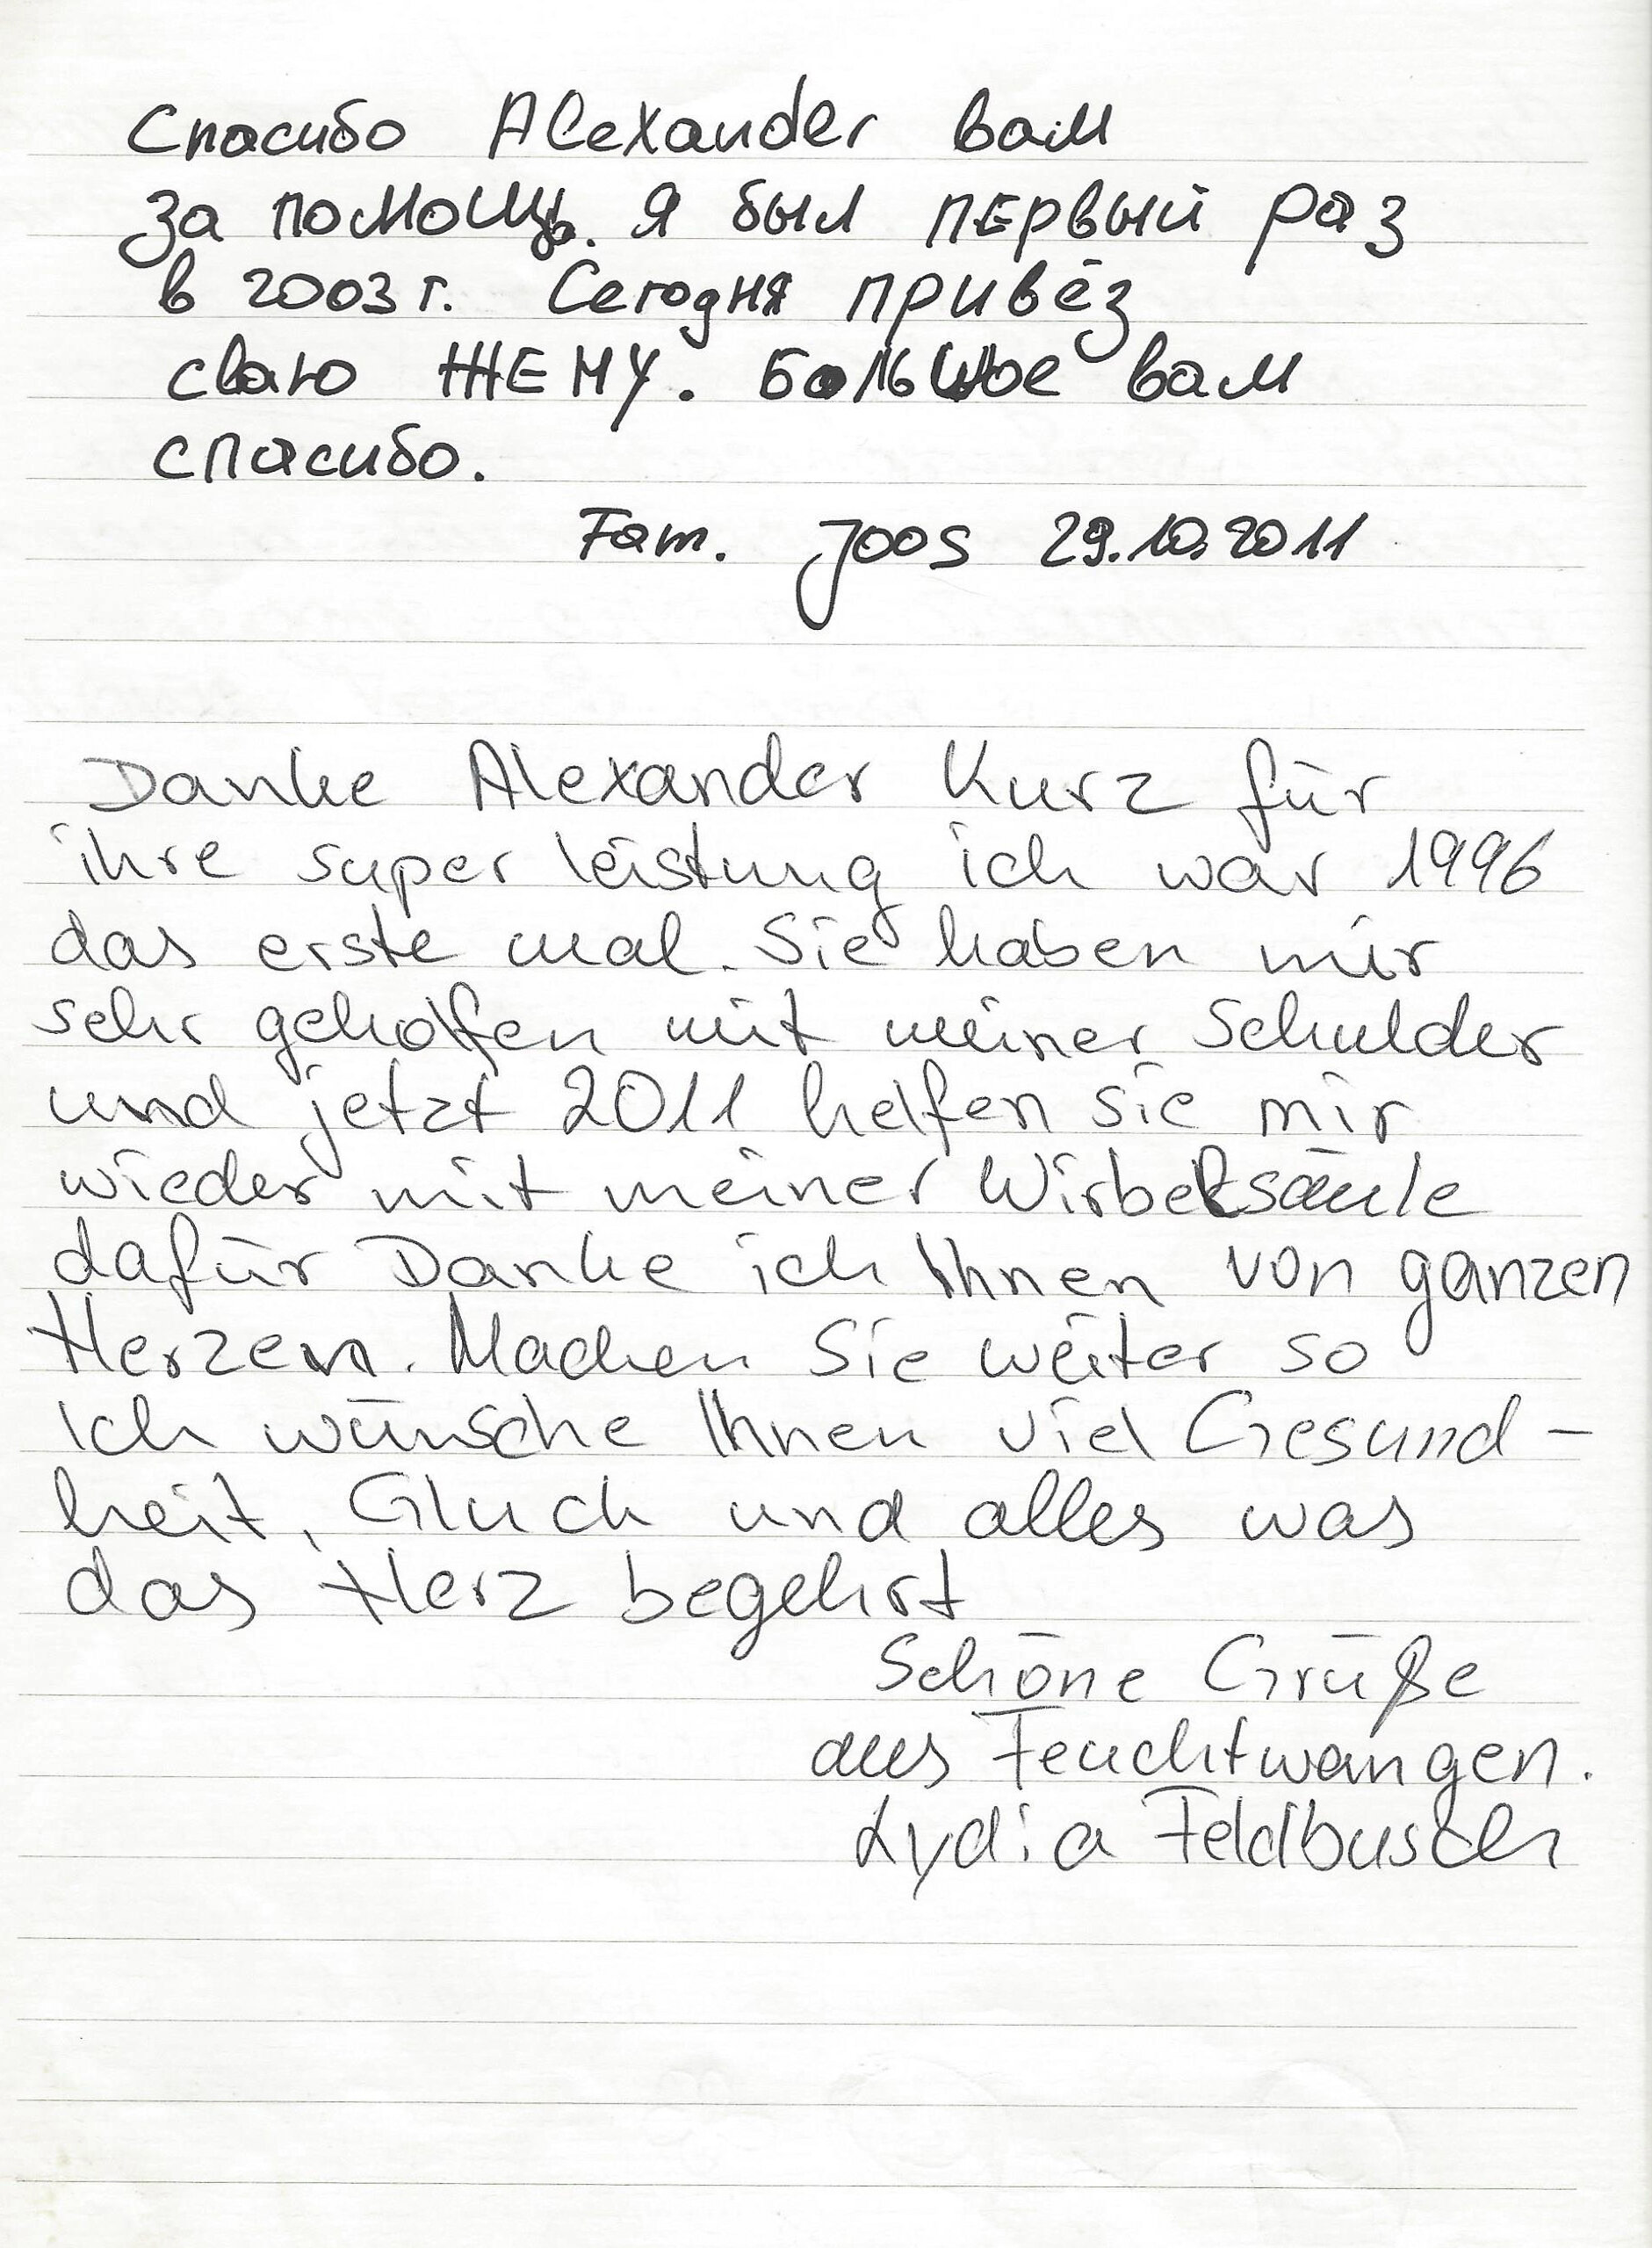 Спасибо Alexander вам
за помощь. Я был первый раз
в 2003 г. Сегодня привёз
сваю ЖЕНУ. Большое вам
спасибо.
Fam. Joos 29.10.2011
Danke Alexander Kurz für
ihre super leistung ich war 1996
das erste mal. Sie haben mir
sehr geholfen mit meiner Schulder
und jetzt 2011 helfen sie mir
wieder mit meiner Wirbelsäule
dafür Danke ich Ihnen von ganzen
Herzen. Machen Sie weiter so
Ich wünsche Ihnen viel Gesund-
heit, Gluck und alles was
das Herz begehrt
Schöne Grüße
aus Feuchtwangen.
Lydia Feldbusch